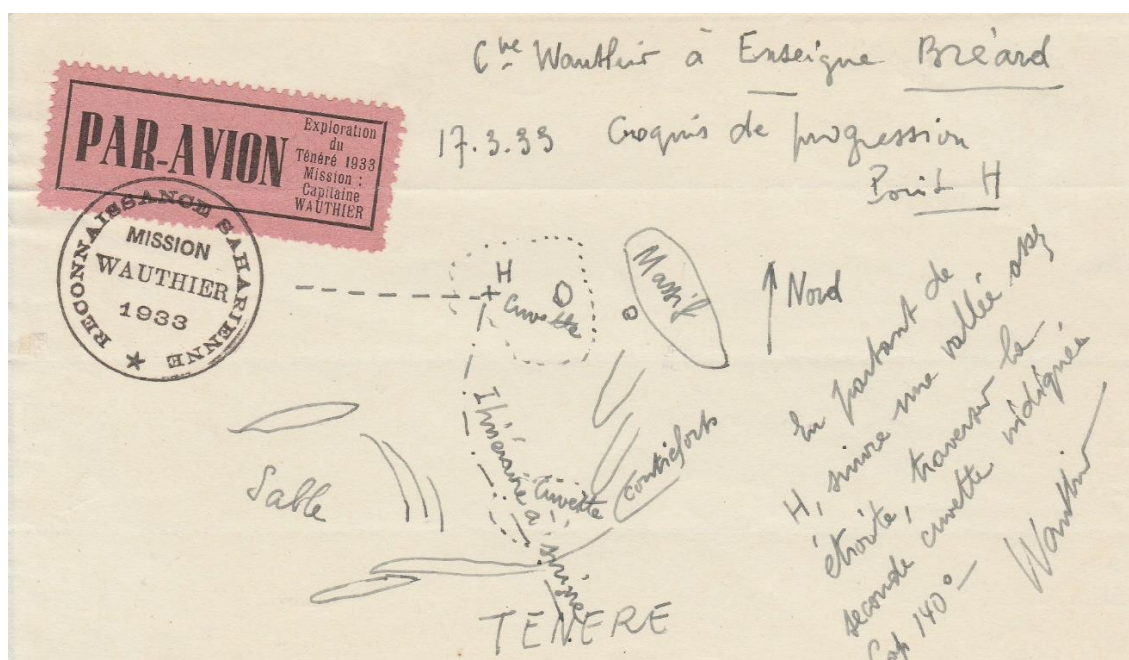 Cne Wauthier à Enseigne Bréard
17.3.33 Croquis de progression
Point H
PAR-AVION
Exploration
du
Ténéré 1933
Mission :
Capitaine
WAUTHIER
RECONNAISSANCE SAHARIENNE
MISSION
WAUTHIER
1933
H
Cuvette
Massif
Nord
Itinéraire à suivre
Cuvette
contreforts
Sable
TÉNÉRÉ
En partant de
H, suivre une vallée assez
étroite, traverser la
seconde cuvette indiquée
Cap 140°
Wauthier